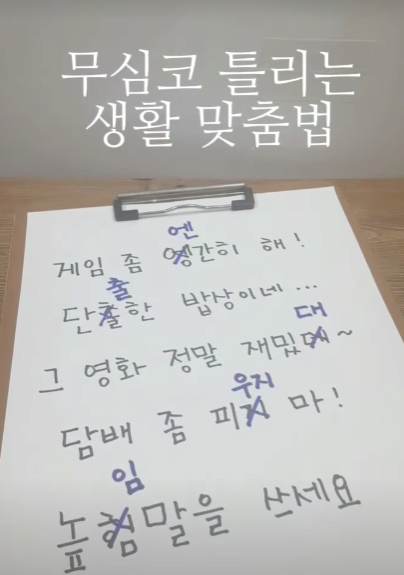 무심코 틀리는
생활 맞춤법
엔
게임 좀 엥간히 해!
출
단촐한 밥상이네...
대
그 영화 정말 재밌데~
우지
담배 좀 피지 마!
임
높힘말을 쓰세요